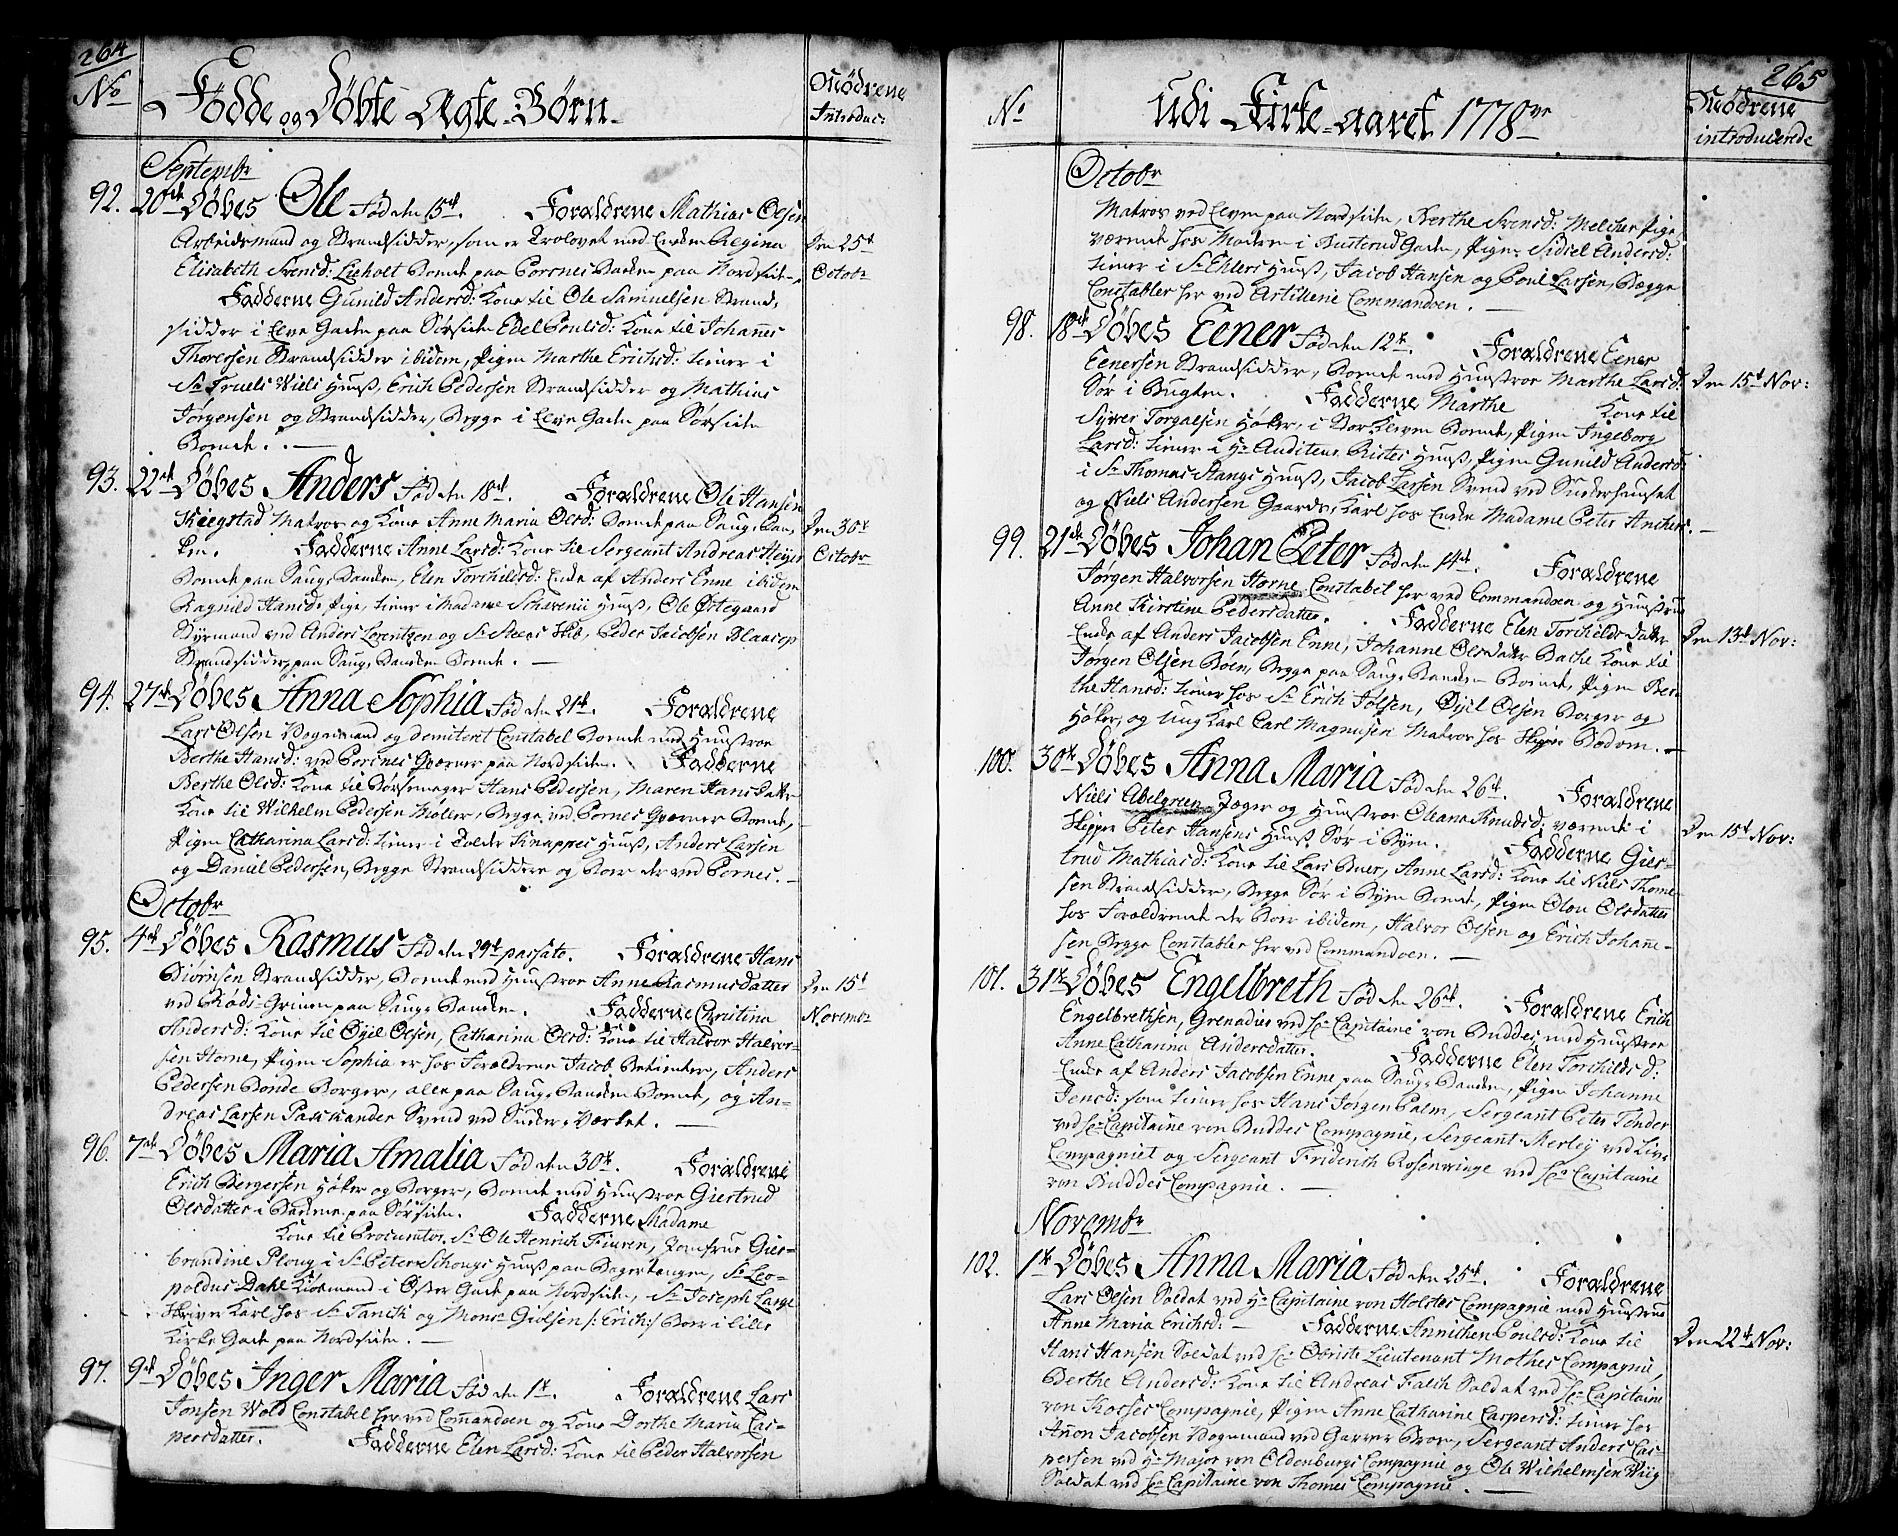 264
No
Fødde og Døbte Ægte-Børn.
Mødrene
Introduc:
Septembr
92. 20de Døbes Ole Fød den 15de. Forældrene Mathias Olsen
Arbeidsmand og Strandsidder, som er Trolovet med Enken Regina
Den 25d
Elisabeth Svensd: Lieholt Boende paa Porsnes Banken paa Nordsiden,
Octobr
Fadderne Gunild Andersd: Kone til Ole Samuelsen Strand,
sidder i Elve Gaden paa Sørsiden Edel Poulsd: Kone til Johannes
Thoresen Strandsidder ibidem, Pigen Marthe Erichsd: tiener i
Sr Truels Wiels Huus, Erich Pedersen Strandsidder og Mathias
Jørgensen og Strandsidder, Begge i Elve Gaden paa Sørsiden
Boende.
93. 22de Døbes Anders Fød den 18de. Forældrene Ole Hansen
Kiegstad Matros og Kone Anne Maria Olsd: Boende paa Saug, Ban,
Den 30te
ken. Fadderne Anne Larsd: Kone til Sergeant Andreas Heyer
Octobr
Boende paa Saug, Banken, Elen Torchildsd: Enke af Anders Enne ibidem
Ragnild Hansd: Pige, tiener i Madame Schavenii Huus, Ole Østegaard
Styrmand ved Anders Lorentzen og Sr Steens Skib, Peder Jacobsen Blaasop
Strandsidder, paa Saug, Banken Boende.
94. 27de Døbes Anna Sophia Fød den 21de. Forældrene
Lars Olsen Vognmand og demiteret Constabel Boende med Huustroe
Berthe Hansd: ved Porsnes Qværner paa Nordsiden. Fadderne
Berthe Olsd: Kone til Børsemager Hans Pedersen, Maren Hans Datter
Kone til Wilhelm Pedersen Møller, Begge ved Pornes Qværner Boende,
Pigen Catharina Larsd: tiener i Tolder Knappes Huus, Anders Larsen
og Daniel Pedersen, Begge Strandsiddere og Boer der ved Pornes.
Octobr
95. 4de Døbes Rasmus Fød den 29de passato. Forældrene Hans
Biørnsen Strandsidder, Boende med Huustroe Anne Rasmusdatter
Den 15d
ved Røds-Grinen paa Saug, Banken. Fadderne Christina
Novembr
Andersd: Kone til Øyel Olsen, Catharina Olsd: Kone til Halvor Halvor-
sen Horne, Pigen Sophia er hos Forældrene Jacob Betienter, Anders
Pedersen Bonde Borger, alle paa Saug, Banken Boende, og An-
dreas Larsen Svend ved Suder, Værket.
96. 7de Døbes Maria Amalia Fød den 30te. Forældrene
Erich Bergersen Høker og Borger, Boende med Huustroe Giertrud
Olsdatter i paa Sørsiden. Fadderne Madame
Kone til Procurator Sr Ole Henrich Fiuren, Jomfrue Gier-
brandine Ploug i Sr Peter Schougs Huus paa Bagertangen, Sr Leo-
poldus Dahl Kiøbmand i Øster Gade paa Nordsiden, Sr Joseph Lange
Skriver Karl hos Sr Tanck og Monsr Giølsen /: Erich :/ Boer i Lille
Kirke Gade paa Nordsiden.
97. 9de Døbes Inger Maria Fød den 1te. Forældrene Lars
Jonsen Wold Constabel her ved Commandoen og Kone Dorthe Maria Cas-
persdatter. Fadderne Elen Larsd: Kone til Peder Halvorsen
265
No
udi Kirke-aaret 1778ve
Mødrene
introducerede
Octobr
Matros ved Elven paa Nordsiden, Berthe Svensd: Melcher Pige,
værende hos Moderen i Busterud Gaden, Pigen Sidsel Andersd:
tiener i Sr Ehlers Huus, Jacob Hansen og Poul Larsen, Begge
Constabler her ved Artillerie Commandoen.
98. 18de Døbes Eener Fød den 12te. Forældrene Eener
Eenersen Strandsidder, Boende med Huustroe Marthe Larsd:
Den 15d Nov:
Sør i Bugten. Fadderne Marthe Kone til
Syver Torgalsen Høker, i Vor Boende, Pigen Ingeborg
Larsd: tiener i Hr Auditeur Ristes Huus, Pigen Gunild Andersd:
i Sr Thomas Stangs Huus, Jacob Larsen Svend ved Suckerhuuset
og Niels Andersen Gaards, Karl hos Enke Madame Peter Anchers.
99. 21de Døbes Johan Peter Fød den 14de. Forældrene
Jørgen Halvorsen Horne Constabel her ved Commandoen og Huustrue
Anne Kirstine Pedersdatter. Fadderne Elen Torchilds datter
Den 13de Nov:
Enke af Anders Jacobsen Enne, Johanne Olsdatter Bache Kone til
Jørgen Olsen Böen, Begge paa Saug, Banken Boende, Pigen Ber-
the Hansd: tiener hos Sr Erich Jølsen, Øyel Olsen Borger og
Høker, og Ung Karl Carl Magnusen Matros hos Skipper Bodom.
100. 30te Døbes Anna Maria Fød den 26de. Forældrene
Niels Abelgreen Jæger og Huustroe Oleana Knudsd: værende i
Den 15d Nov:
Skipper Peter Hansens Huus Sør i Byen. Fadderne Gier-
trud Mathiasd: Kone til Lars Buer, Anne Larsd: Kone til Niels Thome-
sen Strandsidder, Begge Sør i Byen Boende, Pigen Olou Olsdatter
hos Forældrene der Boer ibidem, Halvor Olsen og Erich Johanne-
sen Begge Constabler her ved Commandoen.
101. 31te Døbes Engelbreth Fød den 26de. Forældrene Erich
Engelbrethsen, Grenadier ved Hr Capitaine von Buddes, med Huustroe
Anne Catharina Andersdatter. Fadderne Elen Torchilds d:
Enke af Anders Jacobsen Enne paa Saug, Banken, Pigen Johanne
Jensd: som tiener hos Hans Jørgen Palm, Sergeant Peter Tønder
ved Hr Capitaine von Buddes Compagnie, Sergeant Merley ved Liv,
Compagniet og Sergeant Friderich Rosenwinge ved Hr Capitaine
von Buddes Compagnie.
Novembr
102. 1te Døbes Anna Maria Fød den 25de. Forældrene
Lars Olsen Soldat ved Hr Capitaine von Holstes Compagnie med Huustrue
Anne Maria Erichsd: Fadderne Annichen Poulsd: Kone til
Den 22d Nov:
Hans Hansen Soldat ved Hr Obriste Lieutenant Mothes Compagnie,
Berthe Andersd: Kone til Andreas Falch Soldat ved Hr Capitaine
von Kosses Compagnie, Pigen Anne Catharine Caspersd: tiener hos
Anon Jacobsen Vognmand ved Garver Broen, Sergeant Anders Cas-
persen ved Hr Major von Oldenburgs Compagnie og Ole Wilhelmsen Wiig
Soldat ved Hr Capitaine von Thomes Compagnie.